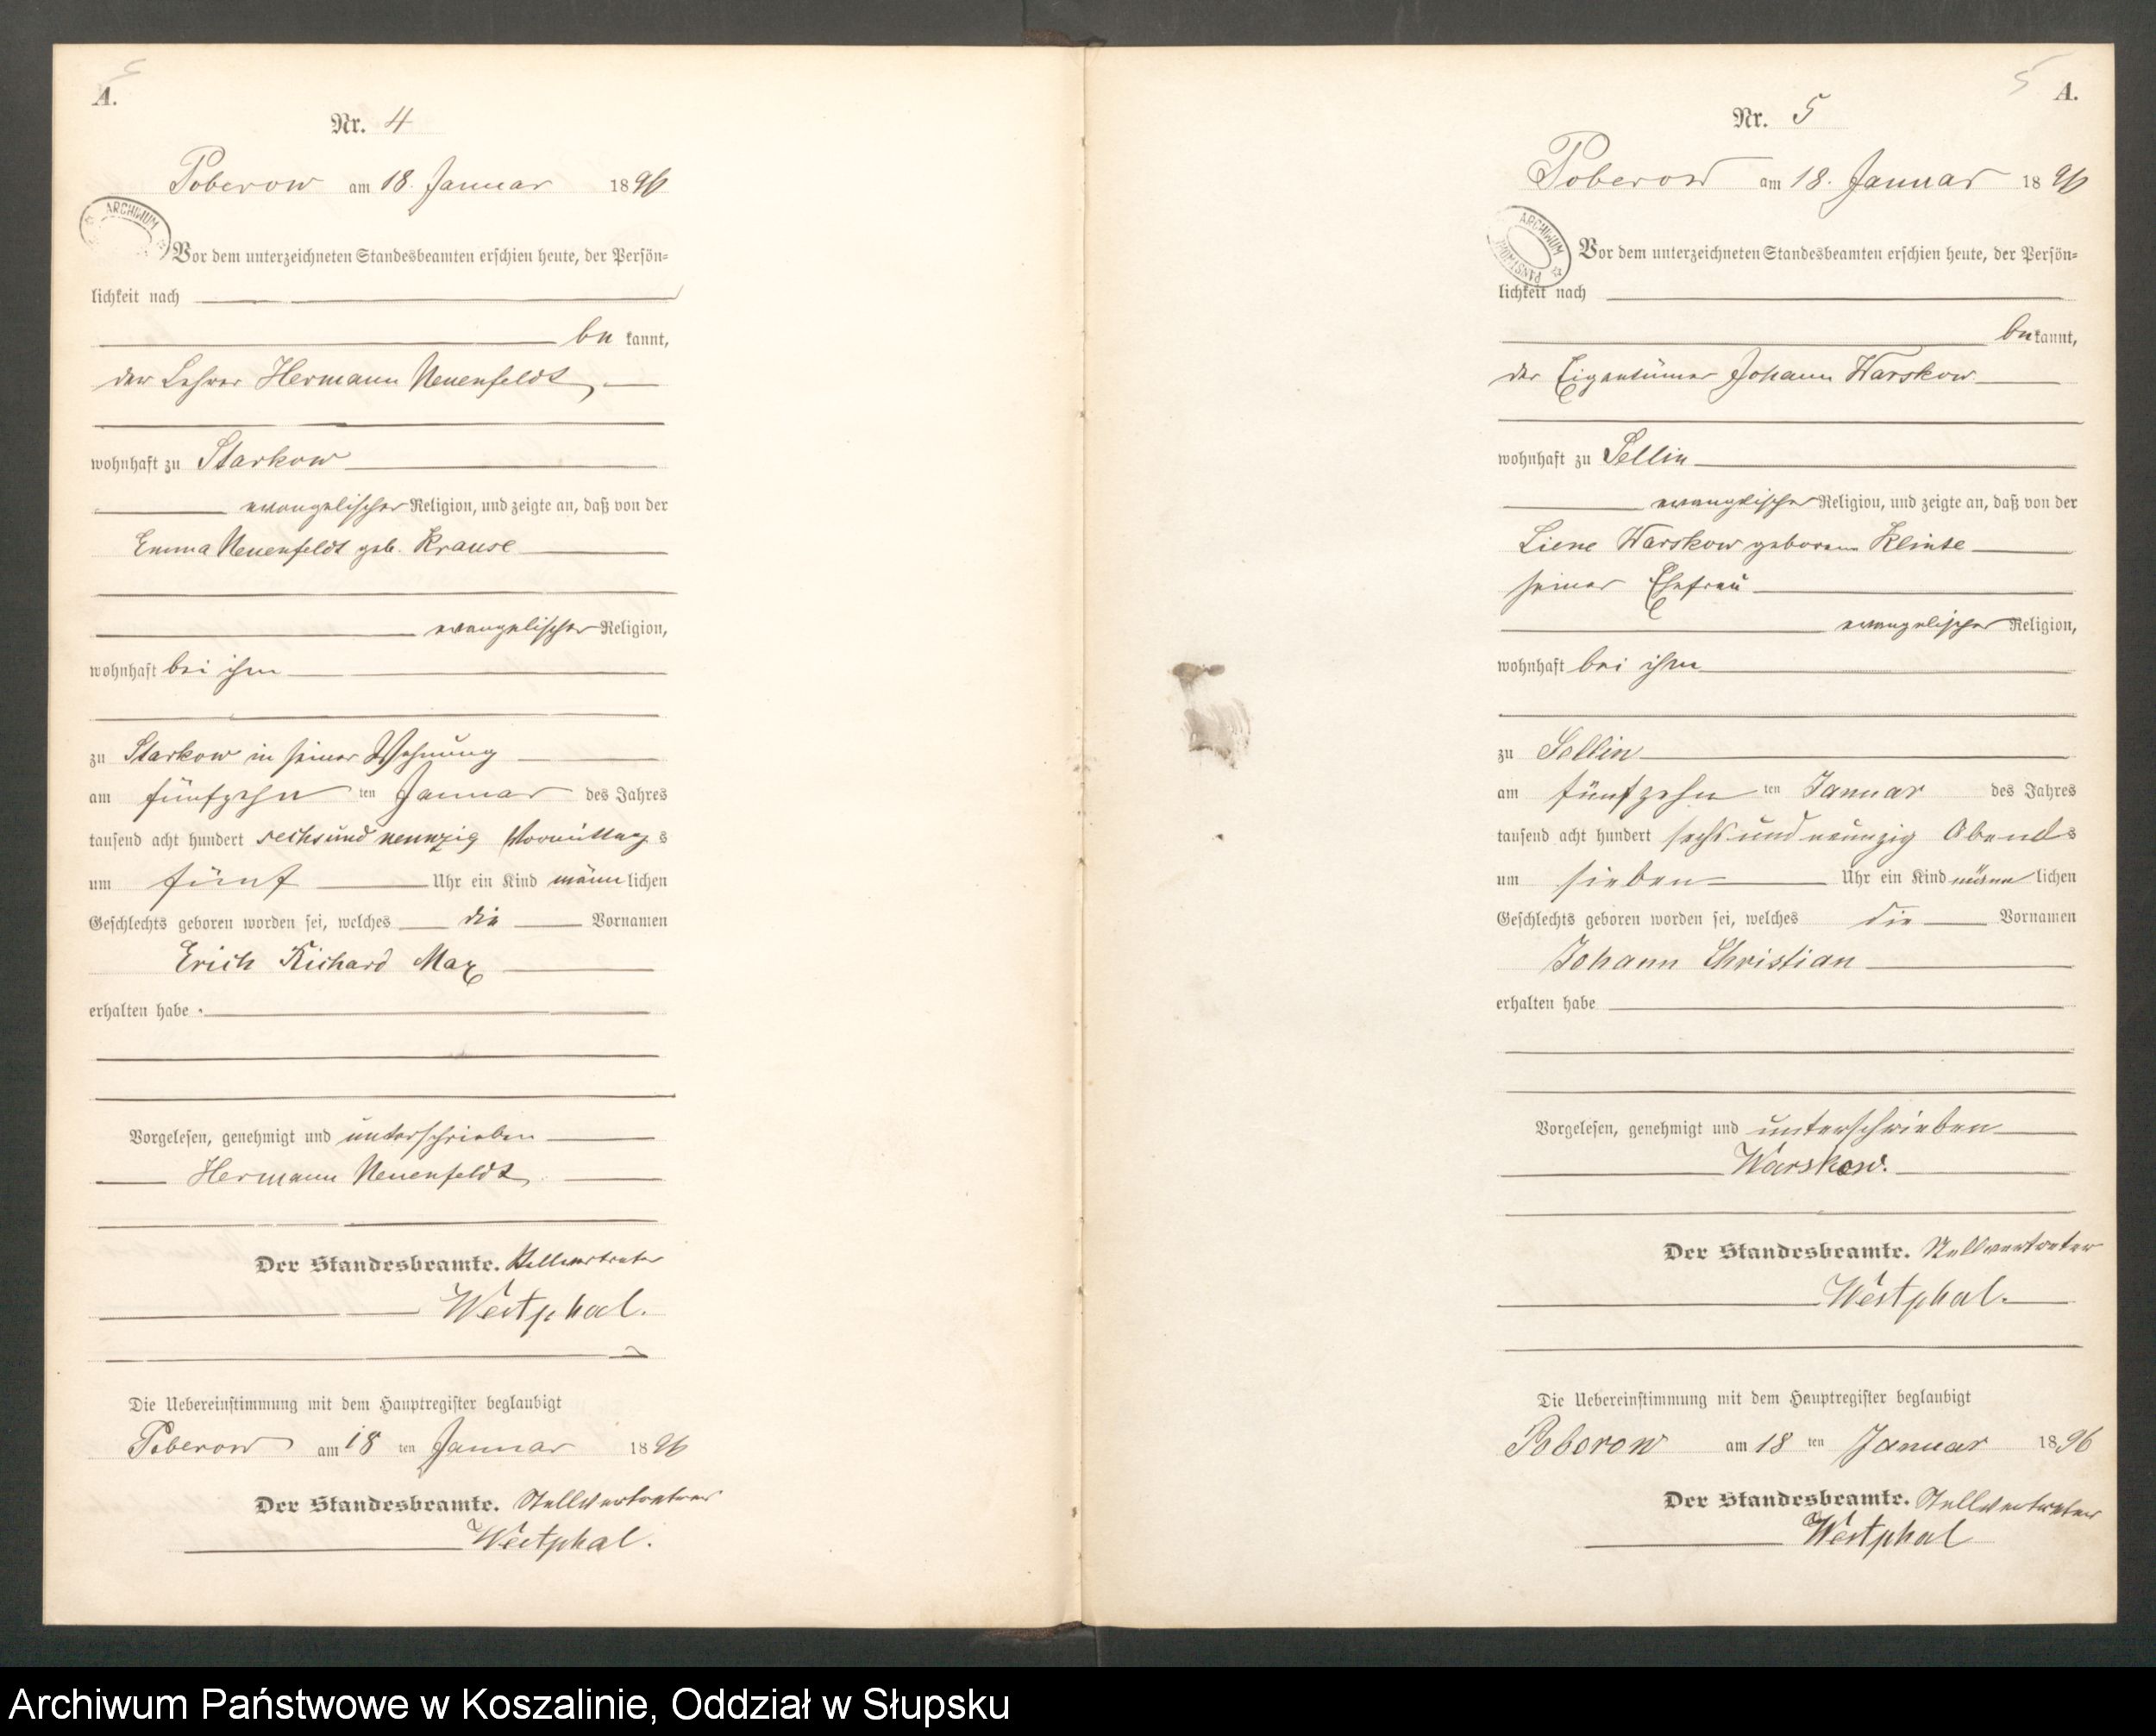 5
A.
Nr. 4
Poberow am 18. Januar 1896
ARCHIWUM
Vor dem unterzeichneten Standesbeamten erschien heute, der Persön=
lichkeit nach
be kannt,
der Lehrer Hermann Neuenfeldt,
wohnhaft zu Starkow
evangelischer Religion, und zeigte an, daß von der
Emma Neuenfeldt geb. Krause
evangelischer Religion,
wohnhaft bei ihm
zu Starkow in seiner Wohnung
am fünfzehn ten Januar des Jahres
tausend acht hundert sechsundneunzig Vormittag s
um fünf Uhr ein Kind männ lichen
Geschlechts geboren worden sei, welches die Vornamen
Erich Richard Max
erhalten habe.
Vorgelesen, genehmigt und unterschrieben
Hermann Neuenfeldt
Der Standesbeamte. Stellvertreter
Westphal.
Die Uebereinstimmung mit dem Hauptregister beglaubigt
Poberow am 18 ten Januar 1896
Der Standesbeamte. Stellvertreter
Westphal.
5
A.
Nr. 5
Poberow am 18. Januar 1896
ARCHIWUM PAŃSTWOWE
Vor dem unterzeichneten Standesbeamten erschien heute, der Persön=
lichkeit nach
be kannt,
der Eigentümer Johann Warskow
wohnhaft zu Sellin
evangelischer Religion, und zeigte an, daß von der
Liene Warskow geborene Klinte
seiner Ehefrau
evangelischer Religion,
wohnhaft bei ihm
zu Sellin
am fünfzehn ten Januar des Jahres
tausend acht hundert sechs und neunzig Abend s
um sieben Uhr ein Kind männ lichen
Geschlechts geboren worden sei, welches die Vornamen
Johann Christian
erhalten habe
Vorgelesen, genehmigt und unterschrieben
Warskow.
Der Standesbeamte. Stellvertreter
Westphal.
Die Uebereinstimmung mit dem Hauptregister beglaubigt
Poberow am 18 ten Januar 1896
Der Standesbeamte. Stellvertreter
Westphal
Archiwum Państwowe w Koszalinie, Oddział w Słupsku